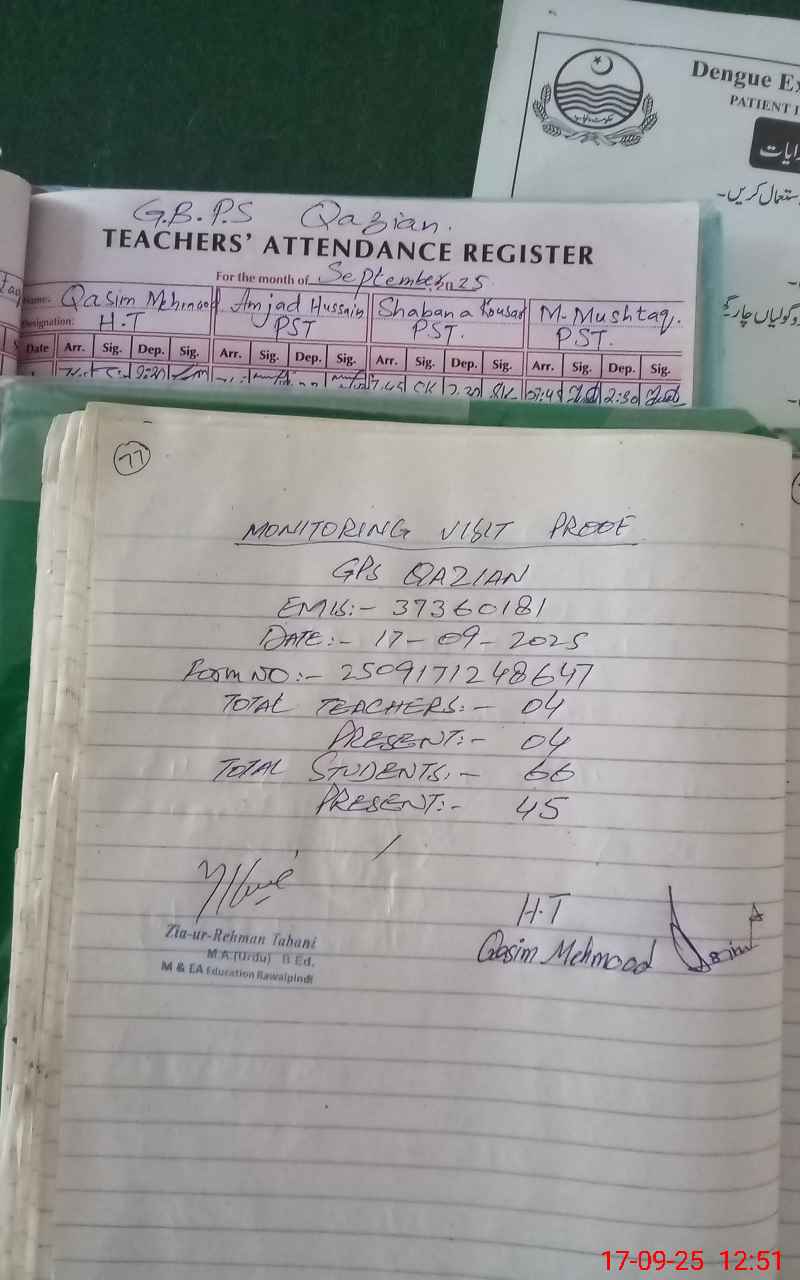 Dengue Ex
PATIENT I
ایات
ستعمال کریں۔
وگولیاں چار
G.B.P.S Qazian.
TEACHERS' ATTENDANCE REGISTER
For the month of September, 25
Name: Qasim Mehmood Amjad Hussain Shabana Kousar M. Mushtaq.
Designation: H.T PST PST. PST.
Date Arr. Sig. Dep. Sig. Arr. Sig. Dep. Sig. Arr. Sig. Dep. Sig. Arr. Sig. Dep. Sig.
7.45 2:30
77
MONITORING VISIT PROOF
GPS QAZIAN
EMIS:- 37360181
DATE:- 17-09-2025
Form NO:- 2509171248647
TOTAL TEACHERS:- 04
PRESENT:- 04
TOTAL STUDENTS:- 66
PRESENT:- 45
H.T
Qasim Mehmood
Zia-ur-Rehman Tabani
M.A.(Urdu) B Ed.
M & EA Education Rawalpindi
17-09-25 12:51